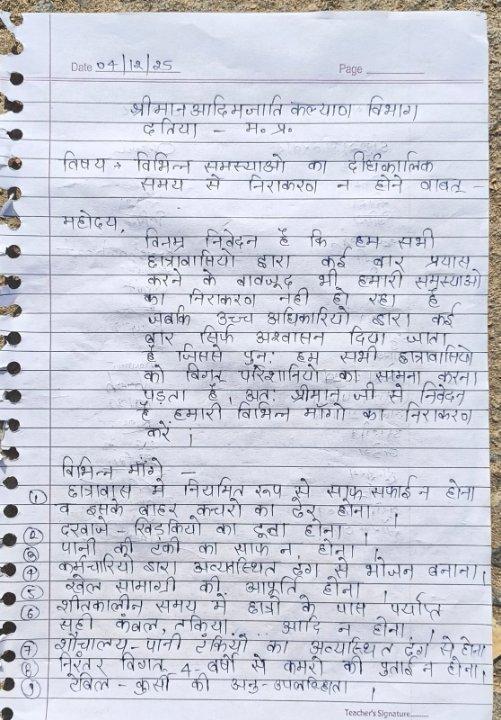 Date 04/12/25 Page
श्रीमान आदिमजाति कल्याण विभाग
दतिया - म.प्र.
विषय → विभिन्न समस्याओ का दीर्घकालिक
समय से निराकरण न होने वावत् -
महोदय,
विनम्र निवेदन है कि हम सभी
छात्रावासियो द्वारा कई बार प्रयास
करने के बावजूद भी हमारी समस्याओ
का निराकरण नही हो रहा है
जबकि उच्च अधिकारियो द्वारा कई
बार सिर्फ अश्वासन दिया जाता
है जिससे पुन: हम सभी छात्रावासियो
को विगत परेशानियो का सामना करना
पड़ता है, अत: श्रीमान जी से निवेदन
है हमारी विभिन्न माँगो का निराकरण
करें ।
विभिन्न माँगे -
1 छात्रावास मे नियमित रूप से साफ सफाई न होना
व इसके बाहर कचरो का ढेर होना ।
2 दरवाजे - खिड़कियो का टूटा होना ।
3 पानी की टंकी का साफ न होना ।
4 कर्मचारियो द्वारा अव्यास्थित ढंग से भोजन बनाना ।
5 खेल सामाग्री की आपूर्ति होना ।
6 शीतकालीन समय मे छात्रो के पास पर्याप्त
सही कंबल, तकिया ... आदि न होना ।
7 शौचालय - पानी टंकियो का अव्यास्थित ढंग से होना
8 निरंतर विगत 4 - वर्षो से कमरो की पुताई न होना ।
9 टेबिल - कुर्सी की अनु - उपलब्धिता ।
Teacher's Signature